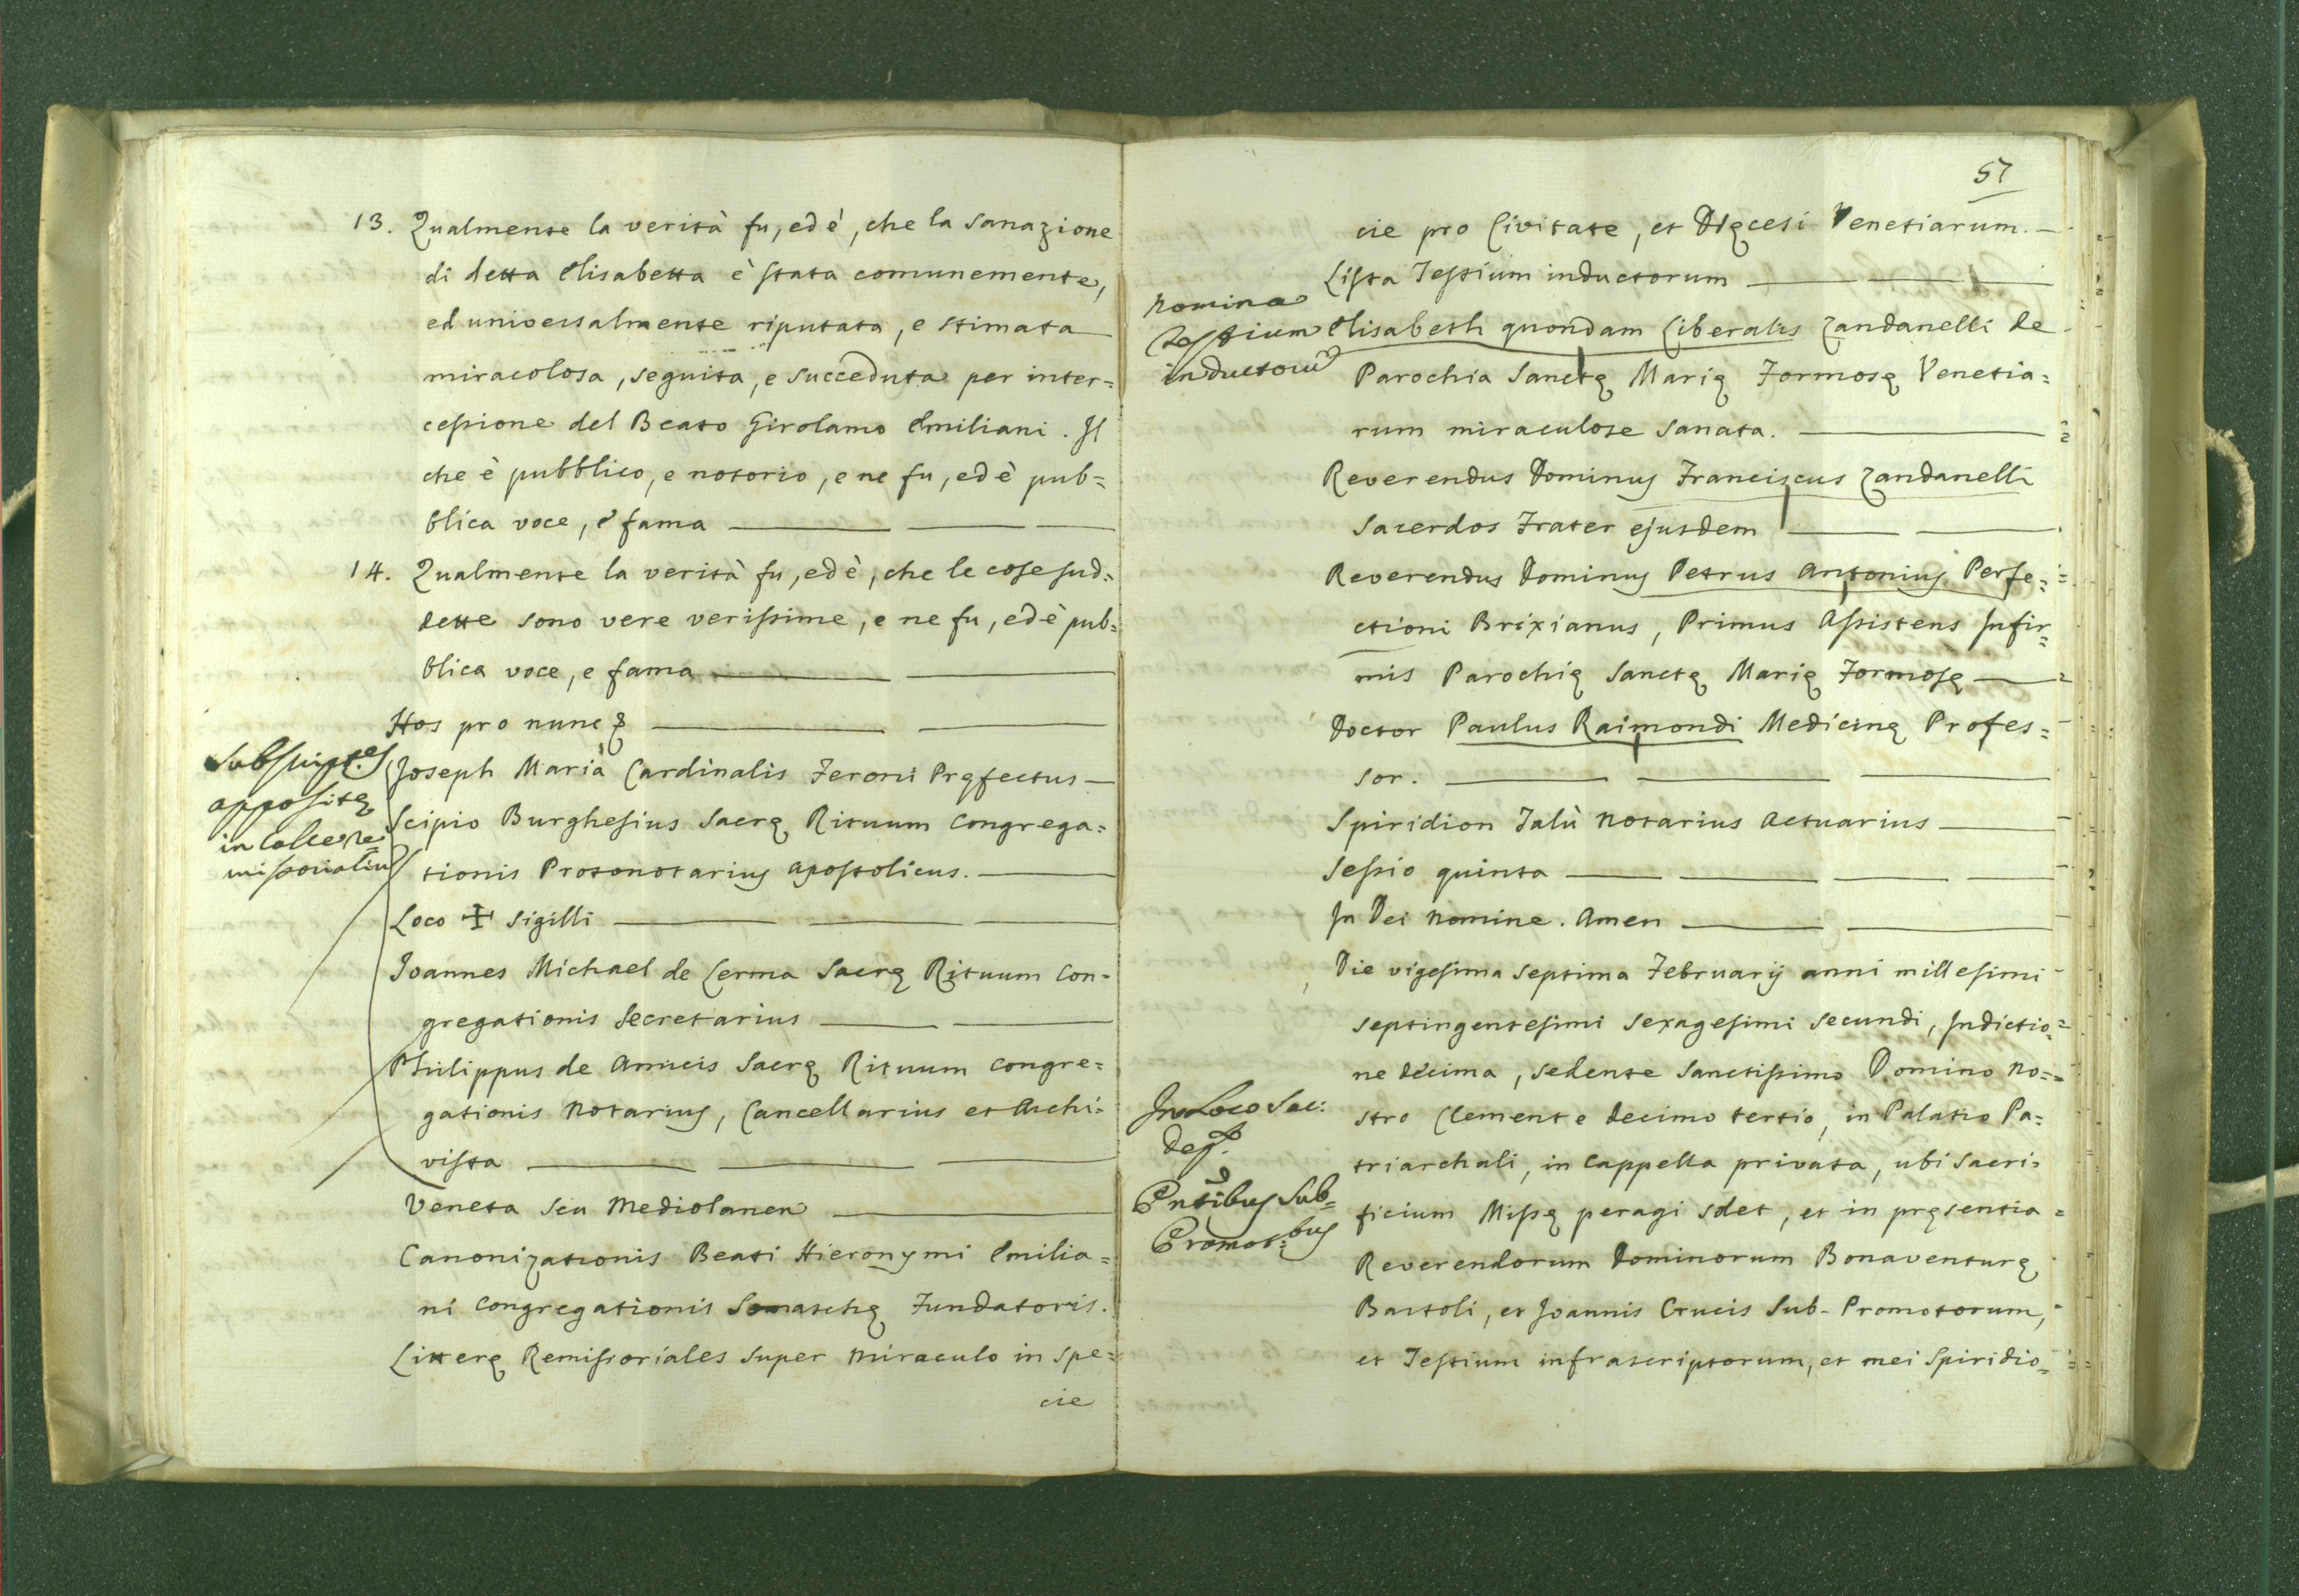 13. Qualmente la verità fu, ed è, che la Sanazione
di detta Elisabetta è stata comunemente,
ed universalmente riputata, e stimata
miracolosa, seguita, e succeduta per inter=
cessione del Beato Girolamo Emiliani. Il
che è pubblico, e notorio, e ne fu, ed è pub=
blica voce, e fama
14. Qualmente la verità fu, ed è, che le cose sud=
dette sono vere verissime, e ne fu, ed è pub=
blica voce, e fama
Hos pro nunc &
Subscript.es
appositę
in calce re=
missorialiũ
Joseph Maria Cardinalis Feroni Pręfectus
Scipio Burghesius Sacrę Rituum Congrega=
tionis Protonotarius Apostolicus.
Loco ✠ Sigilli
Joannes Michael de Lerma Sacrę Rituum Con=
gregationis Secretarius
Philippus de Amicis Sacrę Rituum Congre=
gationis Notarius, Cancellarius et Archi=
vista
Veneta seu Mediolanen
Canonizationis Beati Hieronymi Emilia=
ni Congregationis Somaschę Fundatoris.
Litterę Remissoriales super Miraculo in spe=
cie
57
cie pro Civitate, et Dięcesi Venetiarum.
Lista Testium inductorum
Nomina
Testium
inductorũ
Elisabeth quondam Liberalis Zandanelli de
Parochia Sanctę Marię Formosę Venetia=
rum miraculose sanata.
Reverendus Dominus Franciscus Zandanelli
Sacerdos Frater ejusdem
Reverendus Dominus Petrus Antonius Perfe=
ctioni Brixianus, Primus Assistens Infir=
mis Parochię Sanctę Marię Formosę
Doctor Paulus Raimondi Medicinę Profes=
sor.
Spiridion Talù Notarius Actuarius
Sessio quinta
In Dei Nomine. Amen
Die vigesima septima Februarij anni millesimi
septingentesimi sexagesimi secundi, Indictio=
ne decima, sedente Sanctissimo Domino No=
stro Clemente decimo tertio, in Palatio Pa=
triarchali, in Cappella privata, ubi Sacri=
ficium Missę peragi solet, et in pręsentia
Reverendorum Dominorum Bonaventurę
Bartoli, et Joannis Crucis Sub-Promotorum,
et Testium infrascriptorum, et mei Spiridio=
In Loco Sac:
Pntibus Sub=
Promot:bus